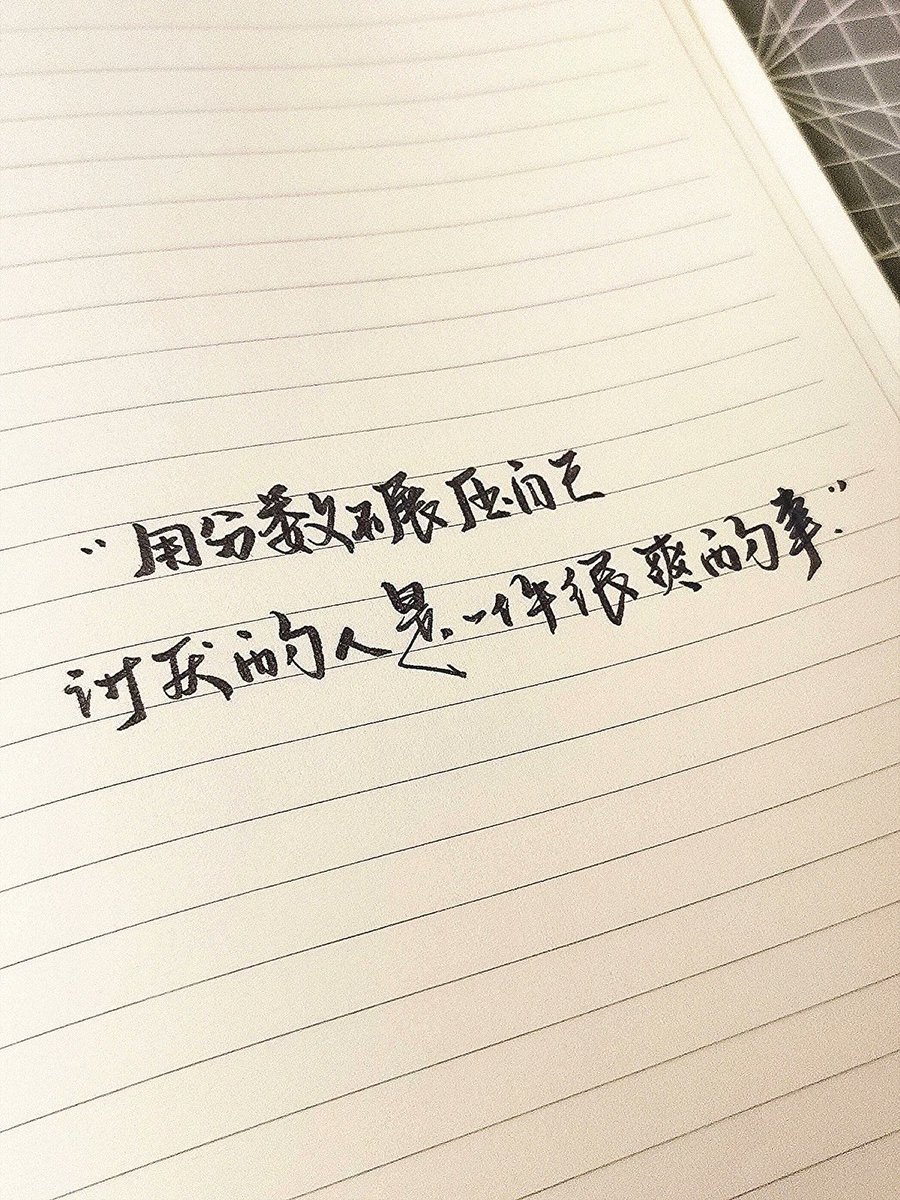 “用分数碾压自己
讨厌的人是一件很爽的事.”